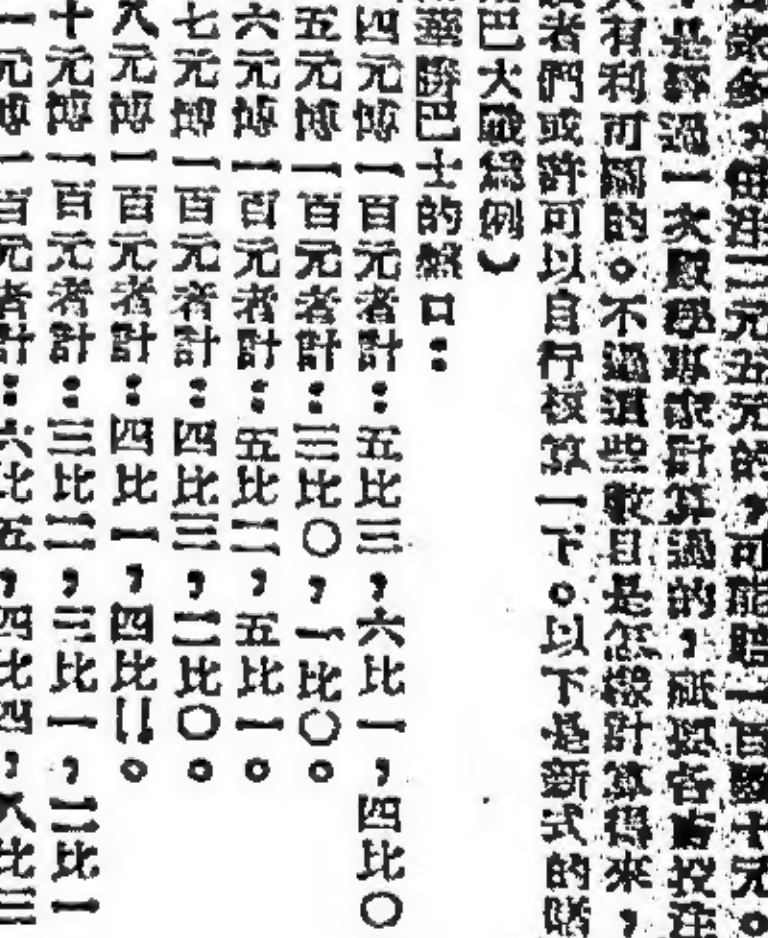 注三元五元的,可能賠一百數十元。
是經過一次數學專家計算過的,
有利可圖的。不過這些數目是怎樣計算得來,
者們或許可以自行核算一下。以下是新式的賭
巴大戰為例)
華勝巴士的盤口:
四元博一百元者計:五比三,六比一,四比〇
五元博一百元者計:三比〇,一比〇。
六元博一百元者計:五比二,五比一。
七元博一百元者計:四比三,二比〇。
八元博一百元者計:四比一,四比二。
十元博一百元者計:三比二,三比一,二比一
一元博一百元者計:六比五,四比四,八比三